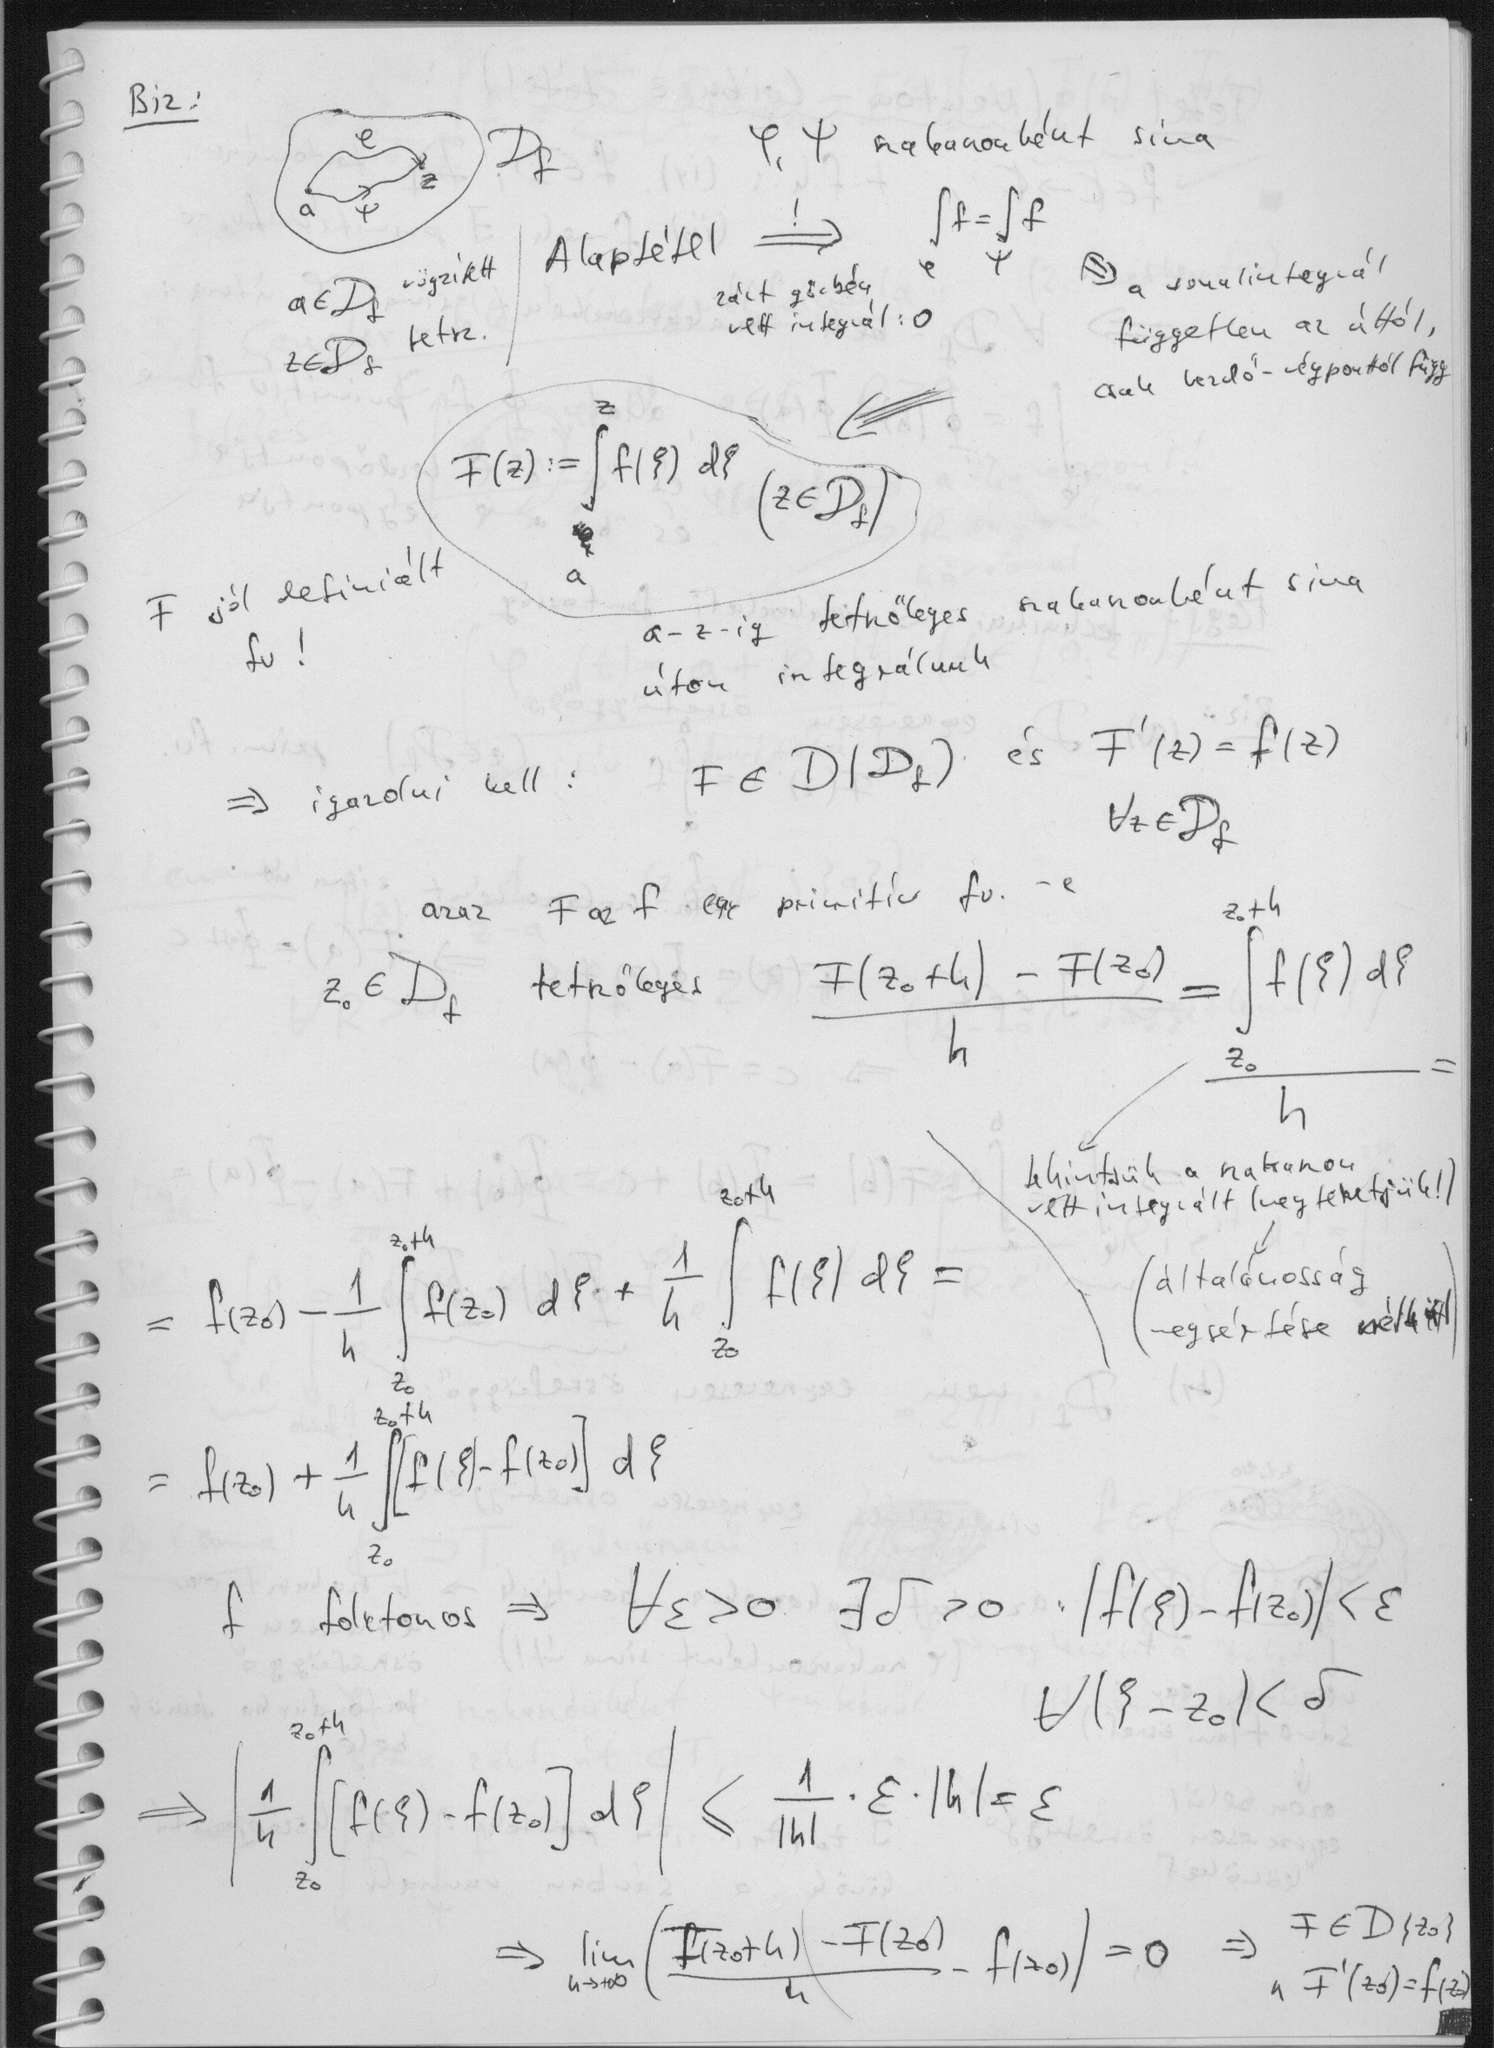 Biz:
φ
a
ψ
z
D_f
φ, ψ szakaszonként sima
a∈D_f rögzített
z∈D_f tetsz.
Alaptétel ⟹ ∫_φ f = ∫_ψ f
!
zárt görbén
vett integrál: 0
⇒ a vonalintegrál
független az úttól,
csak kezdő-végponttól függ
F(z) := ∫_a^z f(ξ) dξ (z∈D_f)
F jól definiált
fv!
a-z-ig tetszőleges szakaszonként sima
úton integrálunk
⇒ igazolni kell: F ∈ D(D_f) és F'(z) = f(z)
∀z∈D_f
azaz F az f egy primitív fv.-e
z₀ ∈ D_f tetszőleges (F(z₀+h) - F(z₀))/h = (∫_{z₀}^{z₀+h} f(ξ) dξ)/h =
tekintsük a szakaszon
vett integrált (megtehetjük!)
(általánosság
megsértése nélkül)
= f(z₀) - 1/h ∫_{z₀}^{z₀+h} f(z₀) dξ + 1/h ∫_{z₀}^{z₀+h} f(ξ) dξ =
= f(z₀) + 1/h ∫_{z₀}^{z₀+h} [f(ξ) - f(z₀)] dξ
f folytonos ⇒ ∀ε>0 ∃δ>0 · |f(ξ) - f(z₀)| < ε
∀|ξ - z₀| < δ
⟹ |1/h ∫_{z₀}^{z₀+h} [f(ξ) - f(z₀)] dξ| ≤ 1/|h| · ε · |h| = ε
⇒ lim ((F(z₀+h) - F(z₀))/h - f(z₀)) = 0 ⇒ F∈D{z₀}
F'(z₀) = f(z₀)